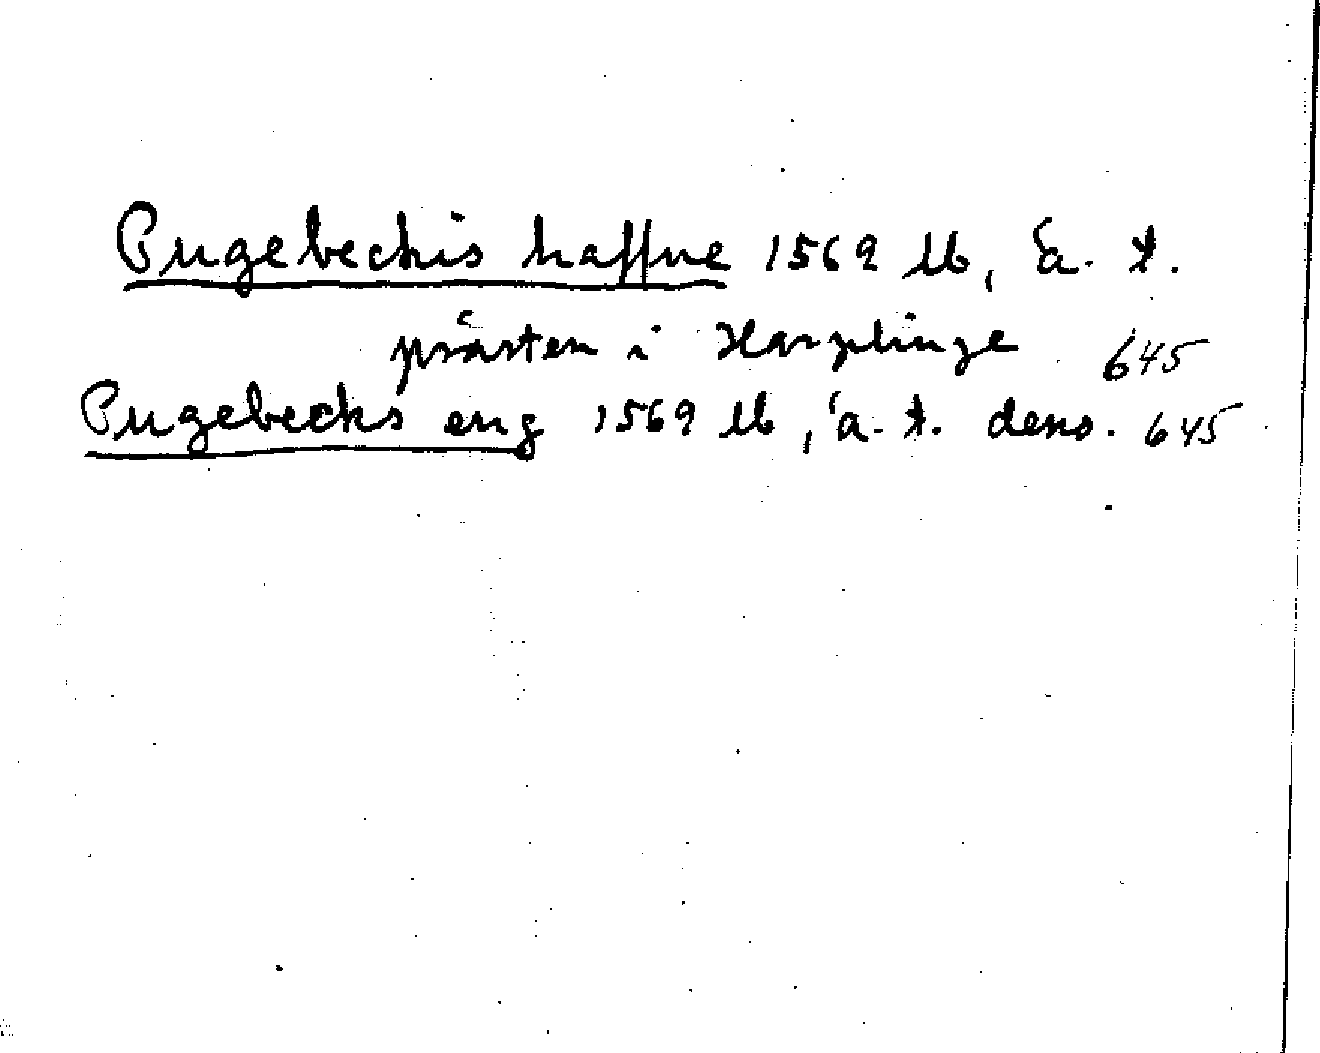 Pugebeckis haffne 1569 lb, ä. t.
prästen i Harplinge 645
Pugebecks eng 1569 lb, ä. t. dens. 645